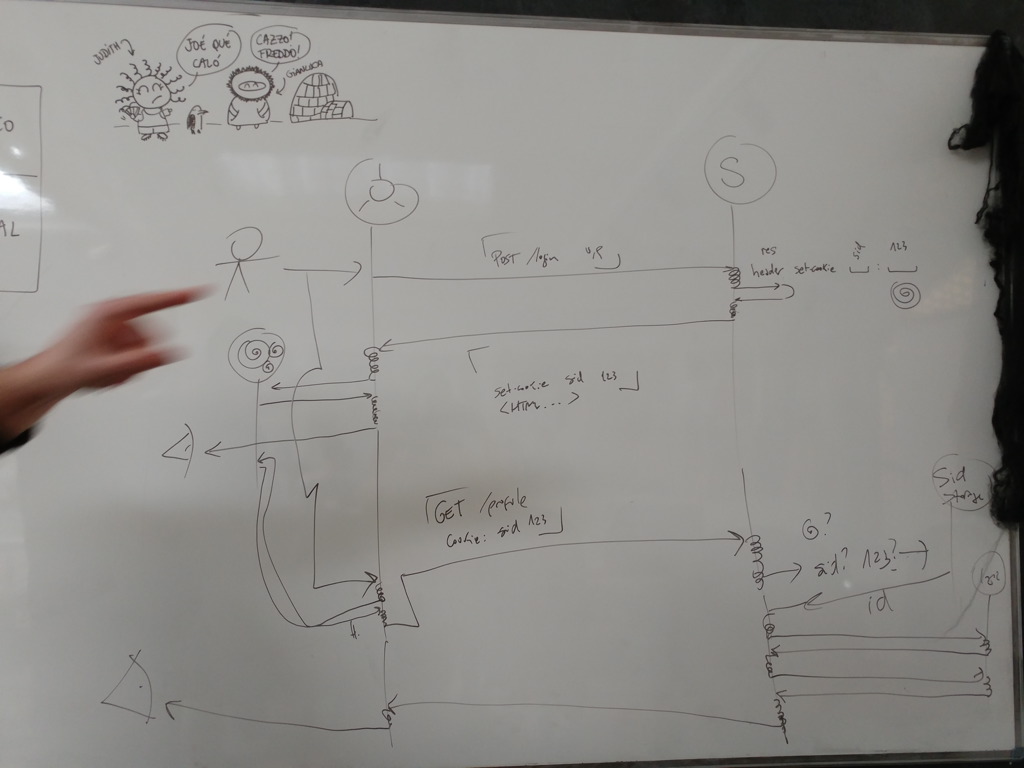 JUDITH
¡JOÉ QUÉ
CALÓ
CAZZO!
FREDDO!
GIANLUCA
CO
AL
S
POST /login U,P
res
header set-cookie sid : 123
set-cookie sid 123
<HTML....>
GET /profile
Cookie: sid 123
Sid
Storage
?
sid? 123?
id